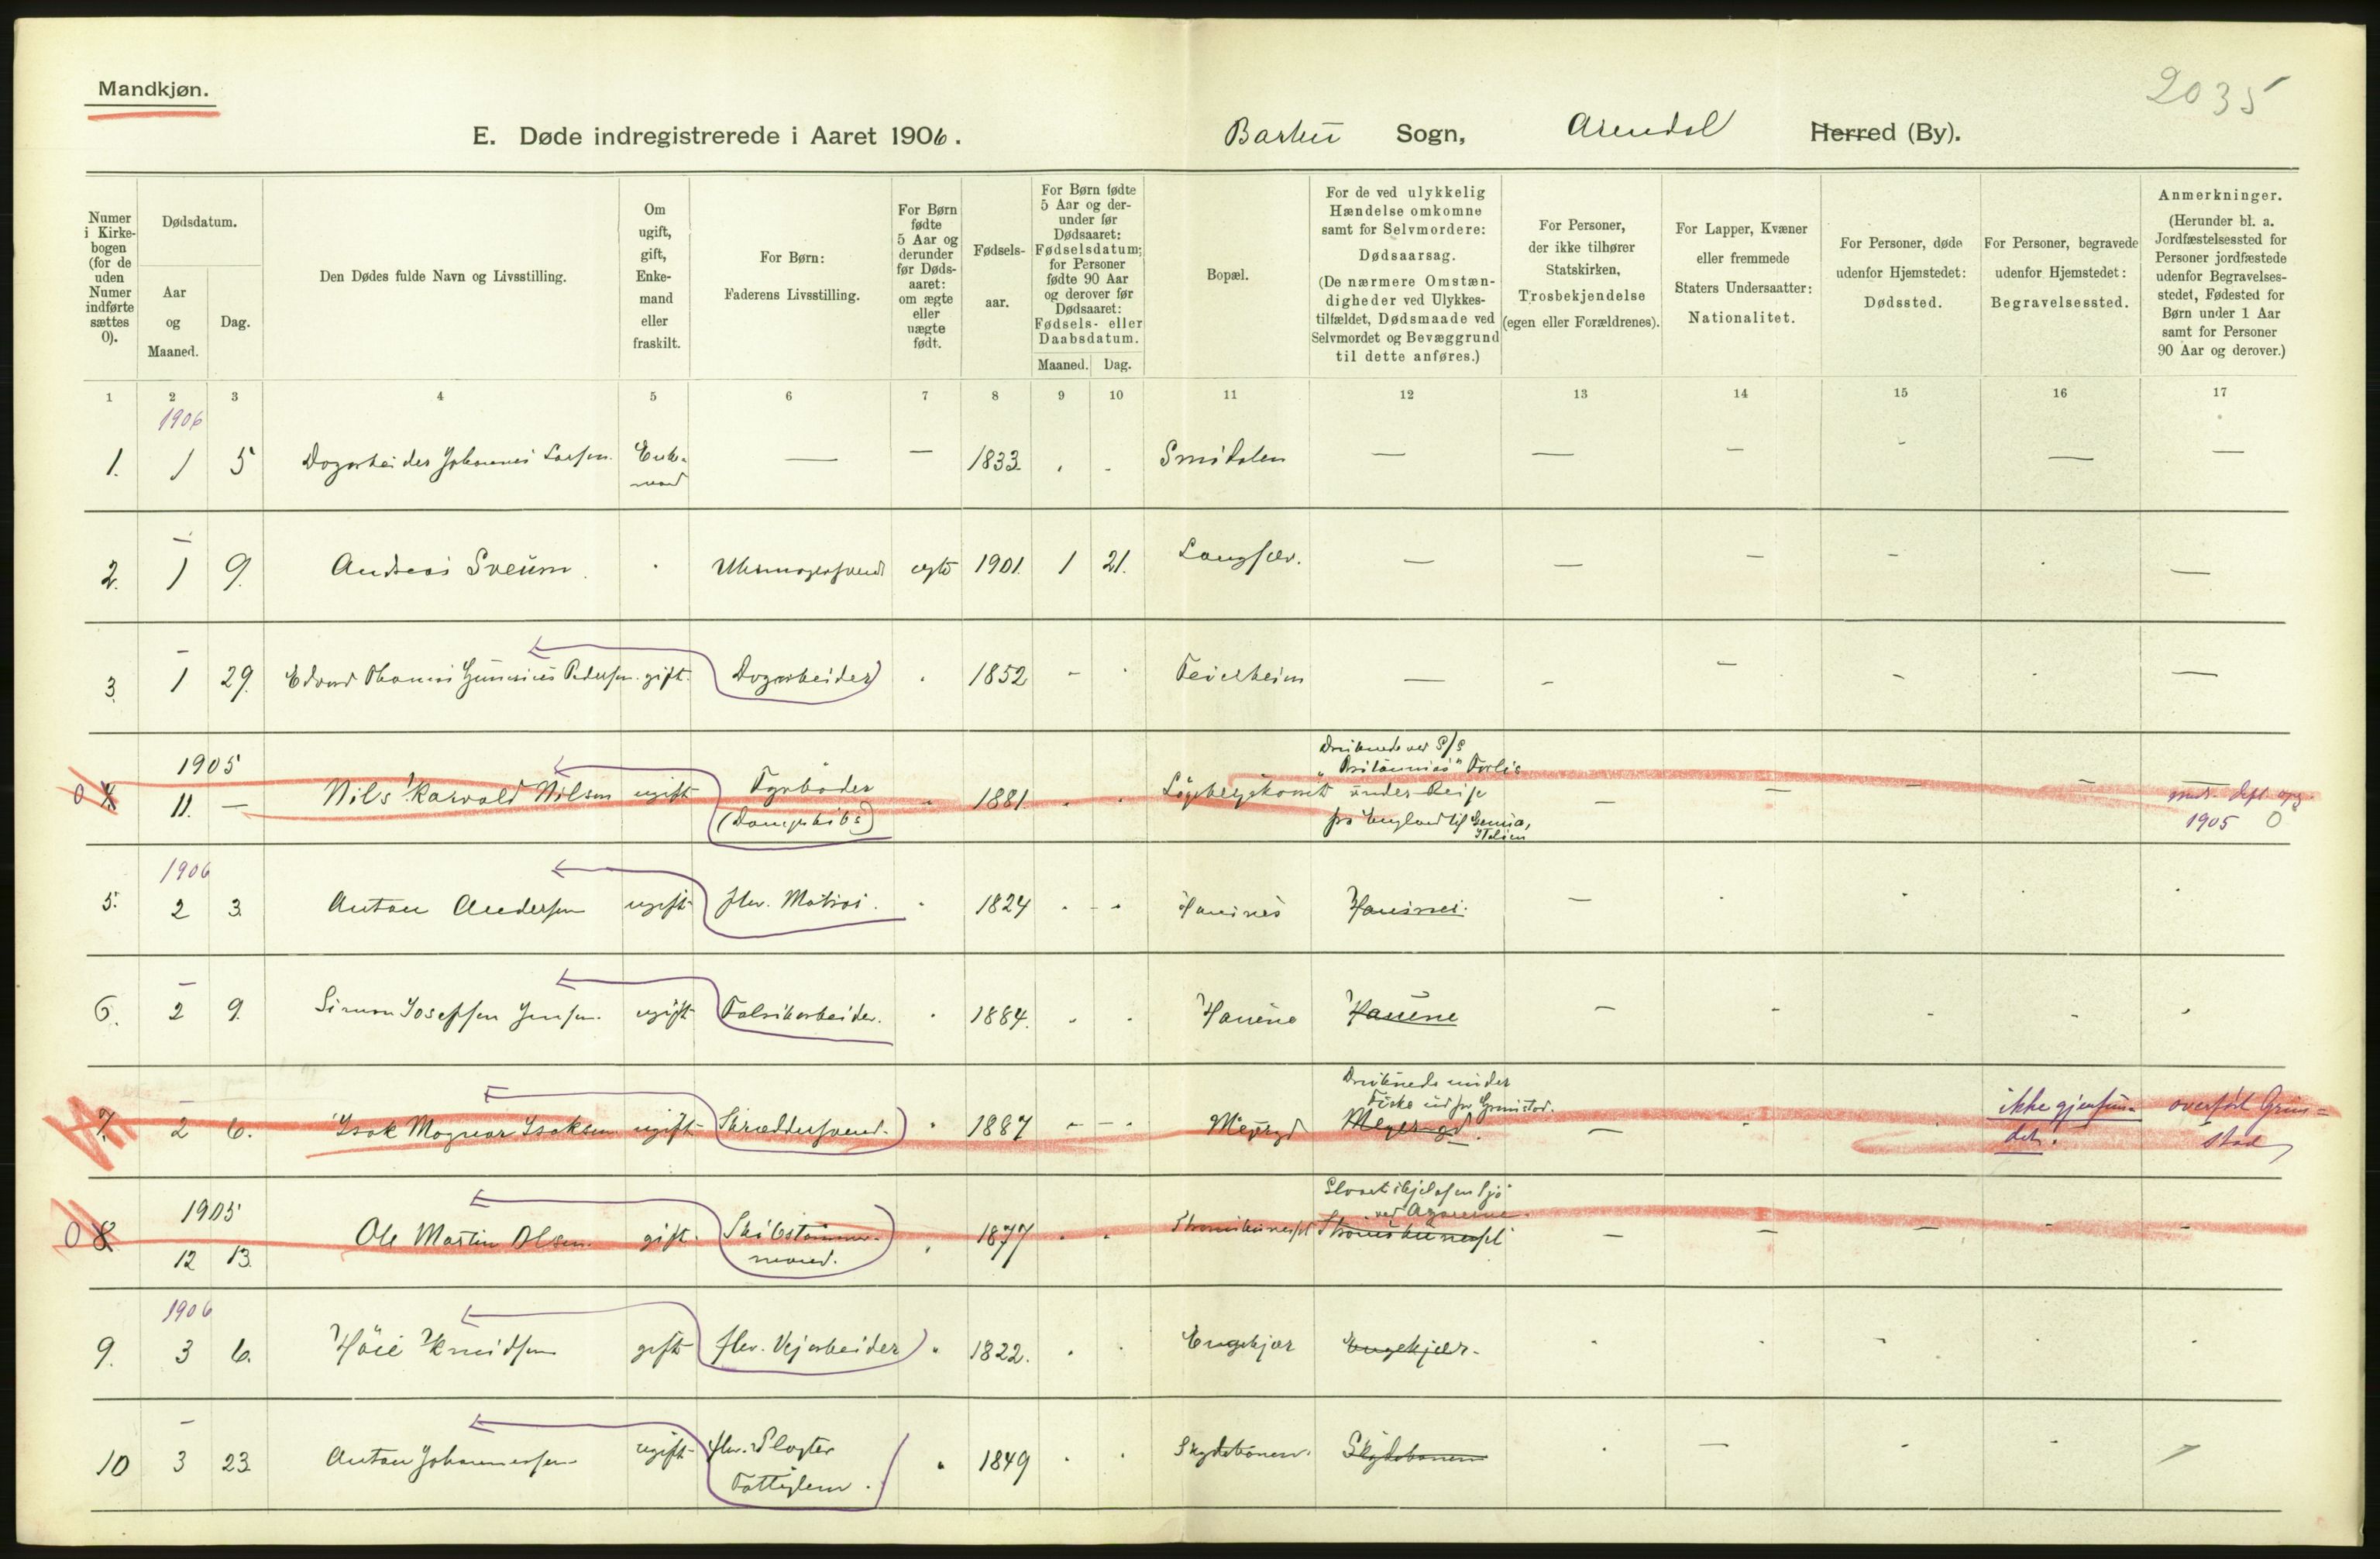 Mandkjøn.
2035
E. Døde indregistrerede i Aaret 1906.
Barbu Sogn, Arendal Herred (By).
Numer i Kirkebogen (for de uden Numer indførte sættes 0).
Dødsdatum.
Aar og Maaned.
Dag.
Den Dødes fulde Navn og Livsstilling.
Om ugift, gift, Enkemand eller fraskilt.
For Børn: Faderens Livsstilling.
For Børn fødte 5 Aar og derunder før Dødsaaret: om ægte eller uægte født.
Fødselsaar.
For Børn fødte 5 Aar og derunder før Dødsaaret: Fødselsdatum; for Personer fødte 90 Aar og derover før Dødsaaret: Fødsels- eller Daabsdatum.
Maaned. Dag.
Bopæl.
For de ved ulykkelig Hændelse omkomne samt for Selvmordere: Dødsaarsag. (De nærmere Omstændigheder ved Ulykkestilfældet, Dødsmaade ved Selvmordet og Bevæggrund til dette anføres.)
For Personer, der ikke tilhører Statskirken, Trosbekjendelse (egen eller Forældrenes).
For Lapper, Kvæner eller fremmede Staters Undersaatter: Nationalitet.
For Personer, døde udenfor Hjemstedet: Dødssted.
For Personer, begravede udenfor Hjemstedet: Begravelsessted.
Anmerkninger. (Herunder bl. a. Jordfæstelsessted for Personer jordfæstede udenfor Begravelsesstedet, Fødested for Børn under 1 Aar samt for Personer 90 Aar og derover.)
1 2 3 4 5 6 7 8 9 10 11 12 13 14 15 16 17
1906
1. 1 5 Dagarbeider Johannes Larsen. Enkemand — — 1833 . - Smidalen — — — - — —
2. 1 9. Andreas Sveum . Uhrmagersvend ægte 1901. 1 21. Langsæv. — — — — . —
3 1 29. Edvard Thomas Pedersen. gift. Dagarbeider . 1852 - . Feierheim — - — - . —
1905
0 4 11. — Nils Harvald Nilsen ugift Fyrbøder (Dampskibs) 1881. Druknede ved S/S "Britannias" Forlis under Reise fra England til Genua, Italien — — — — medr. 1905 0
1906
5. 2 3. Anton Andersen ugift fhv. Matros. . 1824 . - . —
6. 2 9. Simon Josefsen Jensen. ugift Fabrikarbeider. . 1884. . . — - - - .
7. 2 6. Isak Magnar Isaksen ugift Skræddersvend. . 1887 - - . Druknede under Fiske ud for Grimstad. — ikke gjenfunden. overført Grimstad
1905
0 8 12 13. Ole Martin Olsen. gift. Skibstømmermand. . 1877 . . — — — - -
1906
9. 3 6. Knudsen gift fhv. Vejarbeider . 1822. . . Engekjær Engekjær. . . . . .
10 3 23. Anton Johannessen ugift fhv. Slagter Fattiglem. . 1849 . . Skydebanen. Skydebanen . — . .